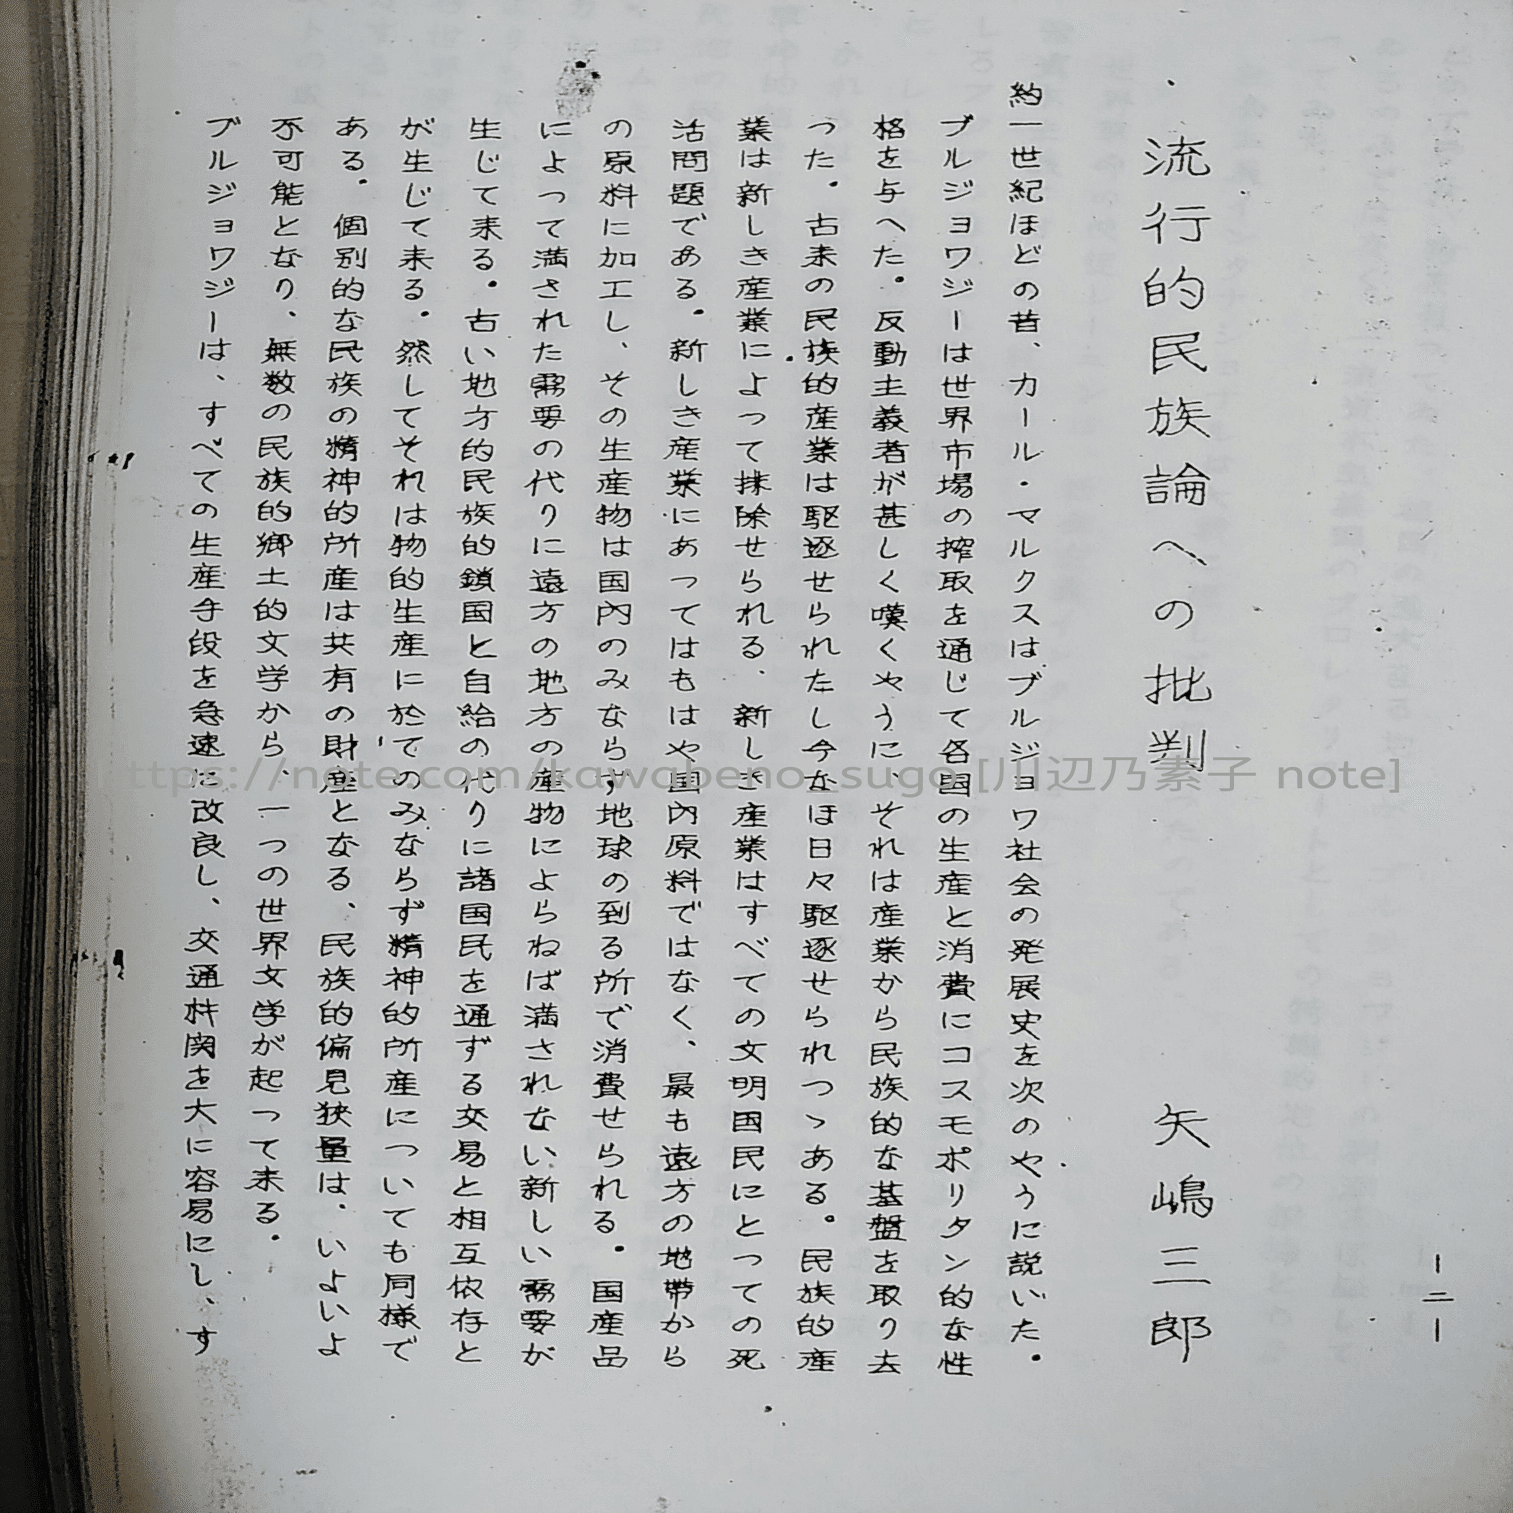 ー二ー
流行的民族論への批判
矢嶋三郎
約一世紀ほどの昔、カール・マルクスはブルジョワ社会の発展史を次のやうに説いた。
ブルジョワジーは世界市場の搾取を通じて各国の生産と消費にコスモポリタン的な性
格を与へた。反動主義者が甚しく嘆くやうに、それは産業から民族的な基盤を取り去
つた。古来の民族的産業は駆逐せられたし今なほ日々駆逐せられつゝある。民族的産
業は新しき産業によって抹除せられる、新しき産業はすべての文明国民にとっての死
活問題である。新しき産業にあってはもはや国内原料ではなく、最も遠方の地帯から
の原料に加工し、その生産物は国内のみならず地球の到る所で消費せられる。国産品
によって満された需要の代りに遠方の地方の産物によらねば満されない新しい需要が
生じて来る。古い地方的民族的鎖国と自給の代りに諸国民を通ずる交易と相互依存と
が生じて来る。然してそれは物的生産に於てのみならず精神的所産についても同様で
ある。個別的な民族の精神的所産は共有の財産となる、民族的偏見狭量は、いよいよ
不可能となり、無数の民族的郷土的文学から、一つの世界文学が起って来る。
ブルジョワジーは、すべての生産手段を急速に改良し、交通机関を大に容易にし、す
https://note.com/kawabeno_sugo [川辺乃素子 note]